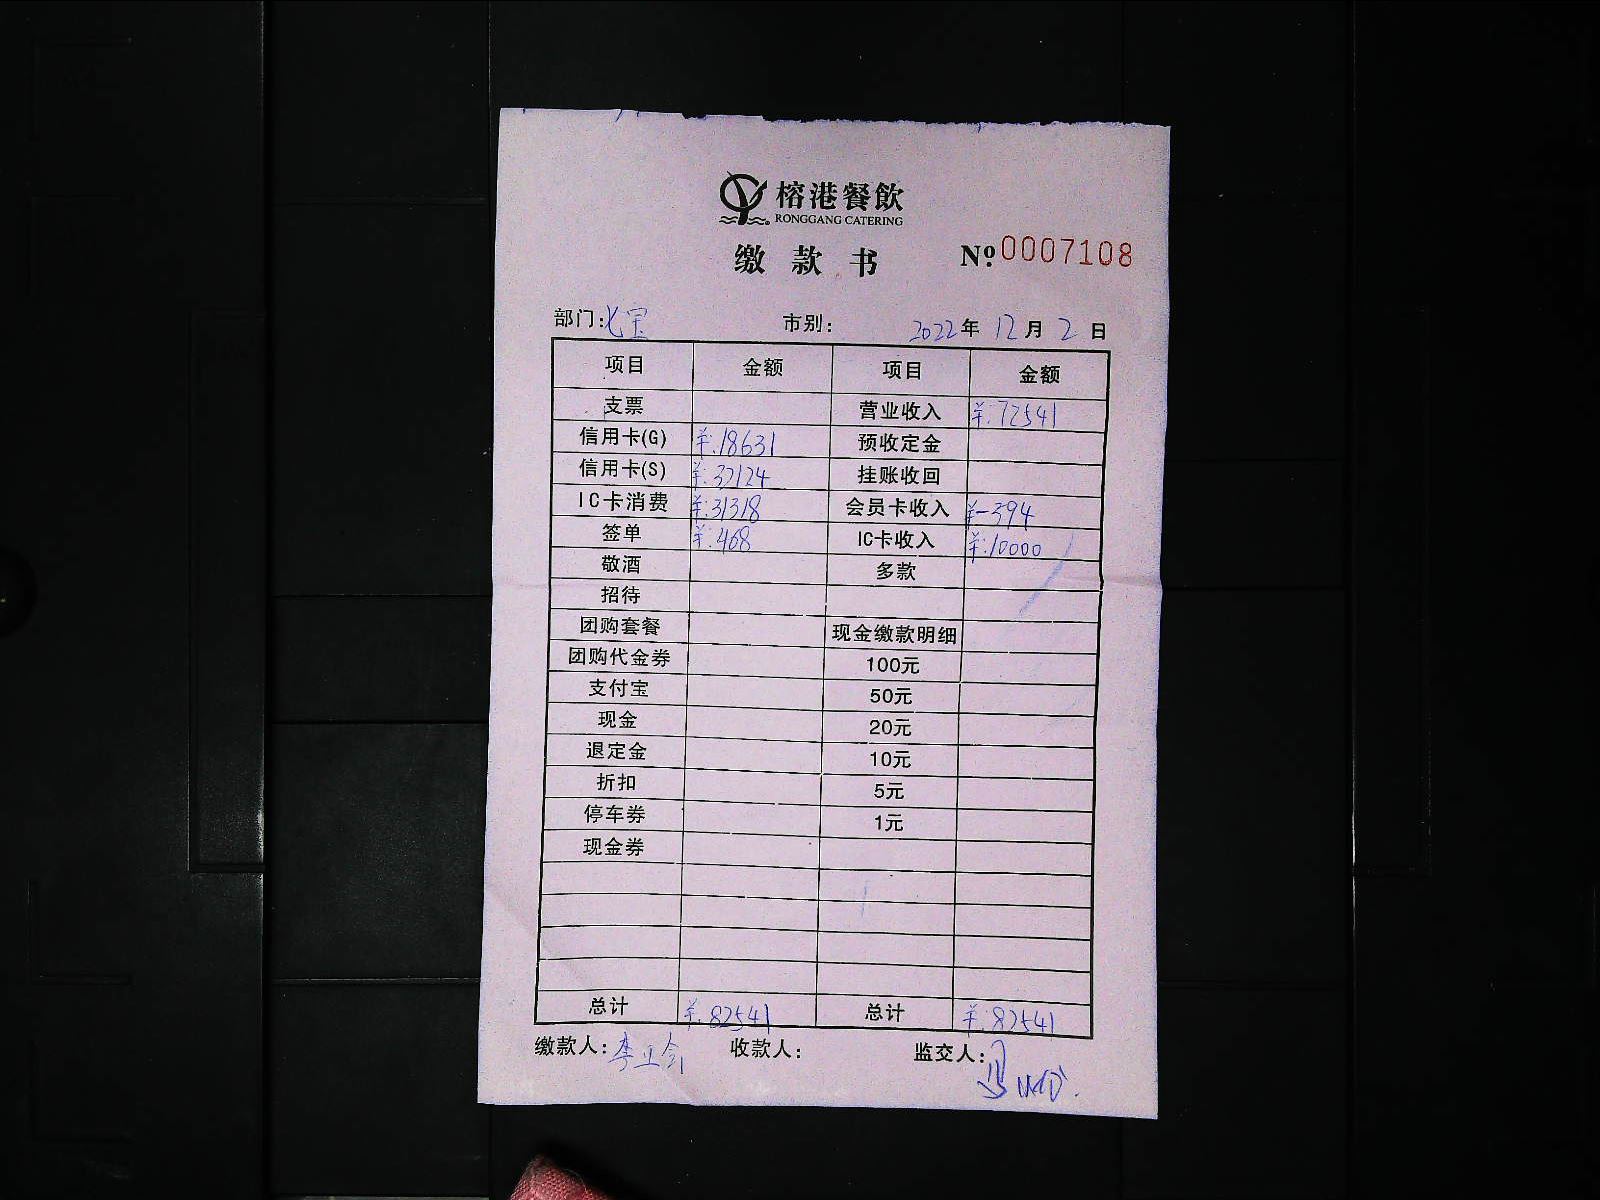 榕港餐飲
RONGGANG CATERING
缴款书 Nº 0007108
部门:七宝 市别: 2022年12月2日
项目 金额 项目 金额
支票 营业收入 ¥:72541
信用卡(G) ¥:18631 预收定金
信用卡(S) ¥:32124 挂账收回
IC卡消费 ¥:31318 会员卡收入 ¥-394
签单 ¥:468 IC卡收入 ¥:10000
敬酒 多款
招待
团购套餐 现金缴款明细
团购代金券 100元
支付宝 50元
现金 20元
退定金 10元
折扣 5元
停车券 1元
现金券
总计 ¥:82541 总计 ¥:82541
缴款人:李 收款人: 监交人: